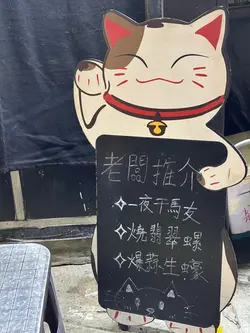 老闆推介
✧一夜干馬友
✧燒翡翠螺
✧爆蒜生蠔